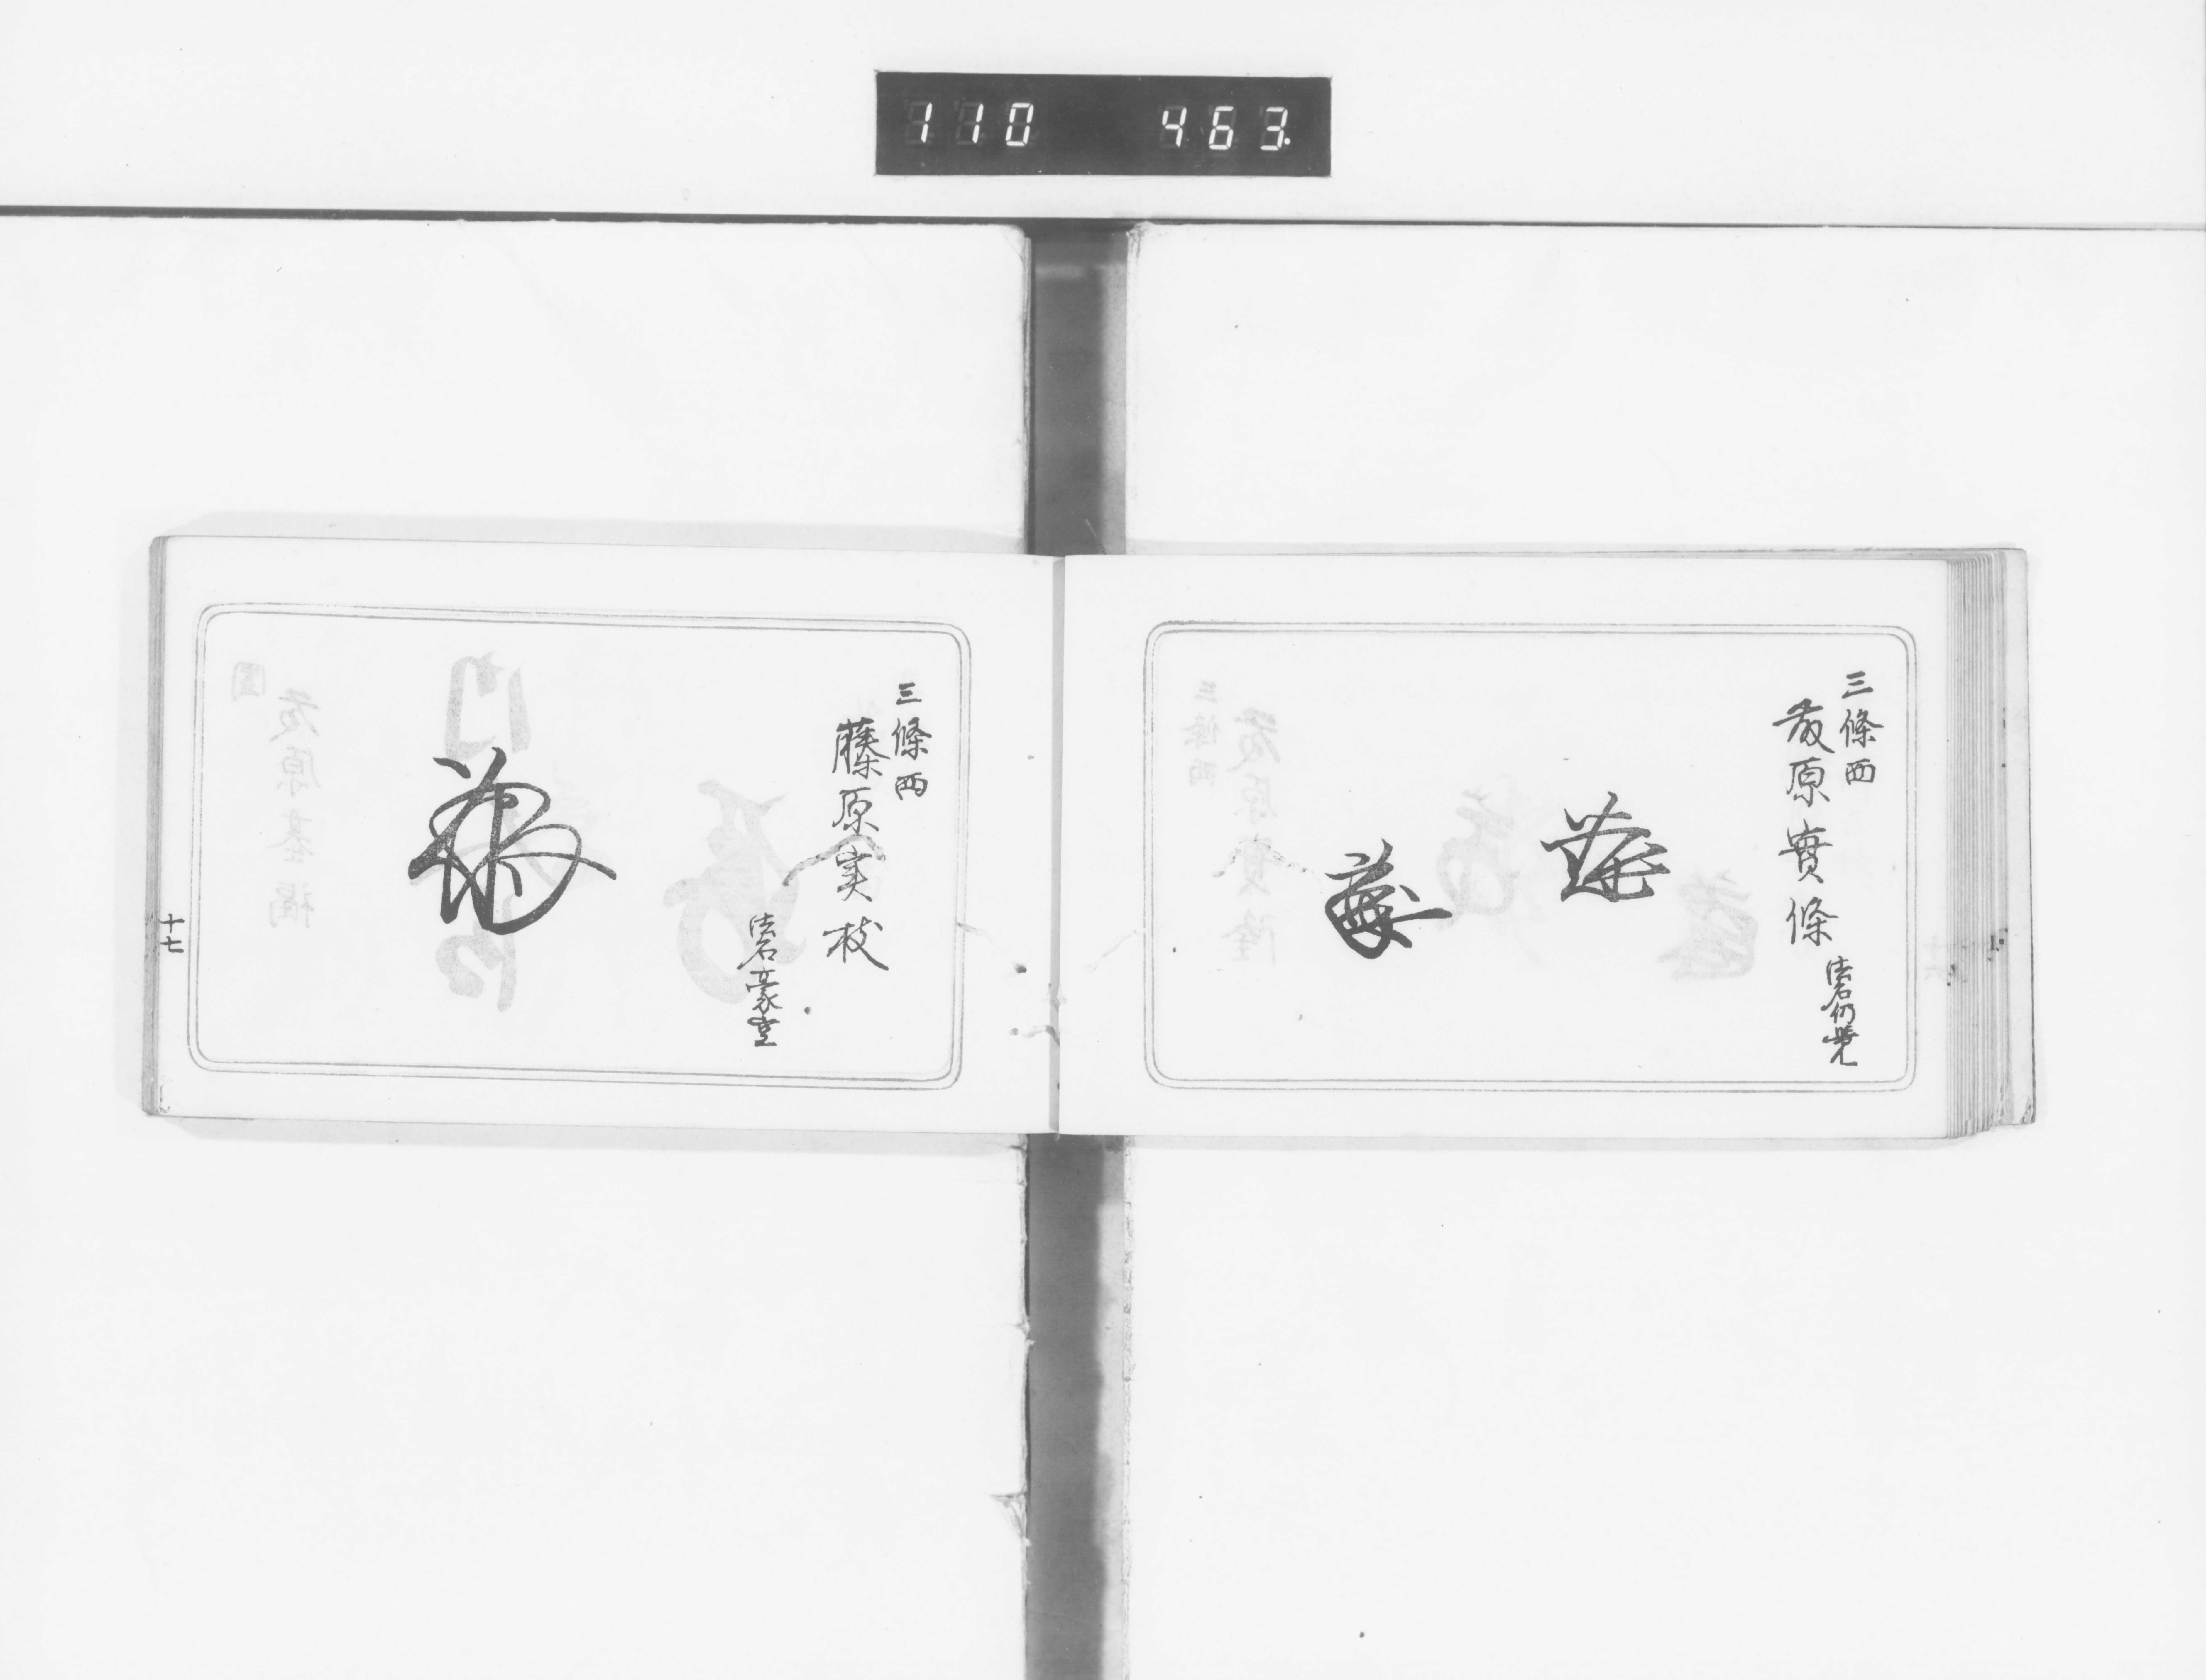 110 463.
三條西
藤原實條
法名仍覺
三條西
藤原実枝
法名豪空
十七